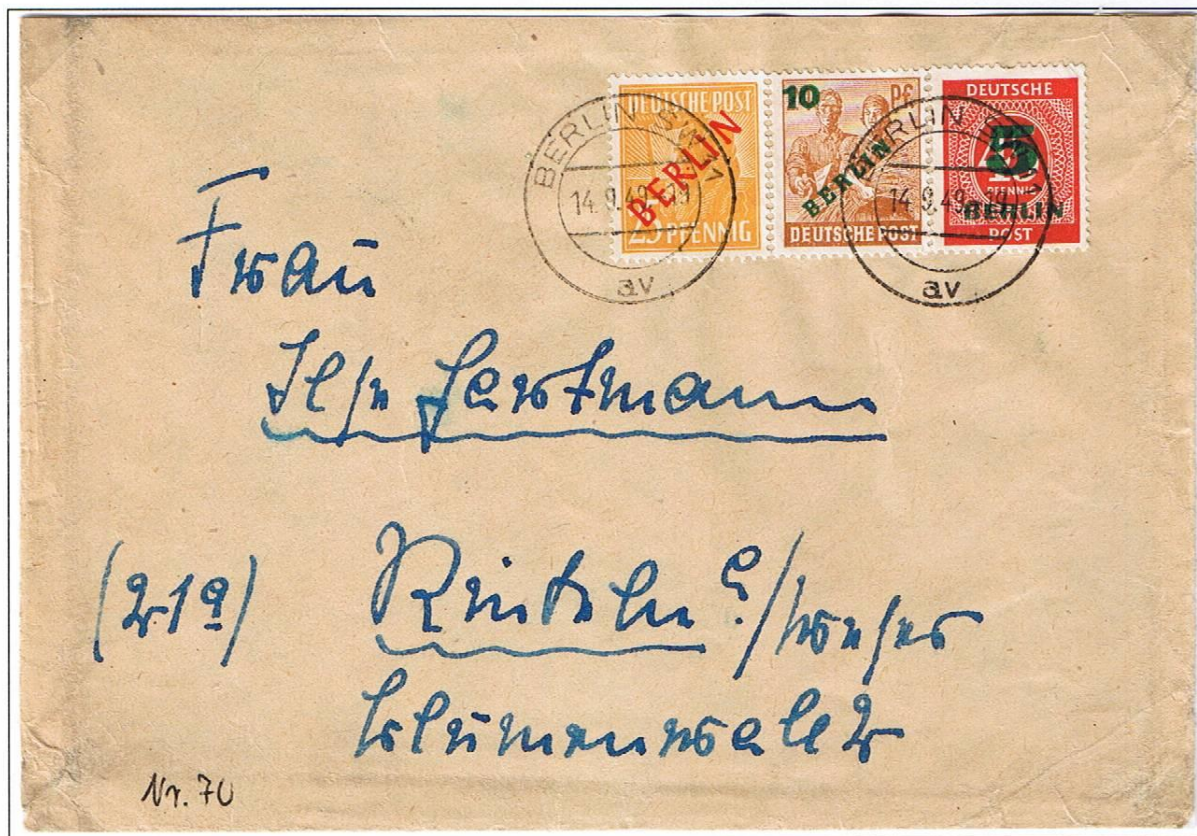 DEUTSCHE POST
BERLIN
25 PFENNIG
10 Pf
BERLIN
DEUTSCHE POST
DEUTSCHE
5
PFENNIG
BERLIN
POST
BERLIN SW
14.9.49
av
BERLIN SW
14.9.49
av
Frau
Ilse Hartmann
(21a) Rinteln a/Weser
Blumenwall 2
Nr. 70